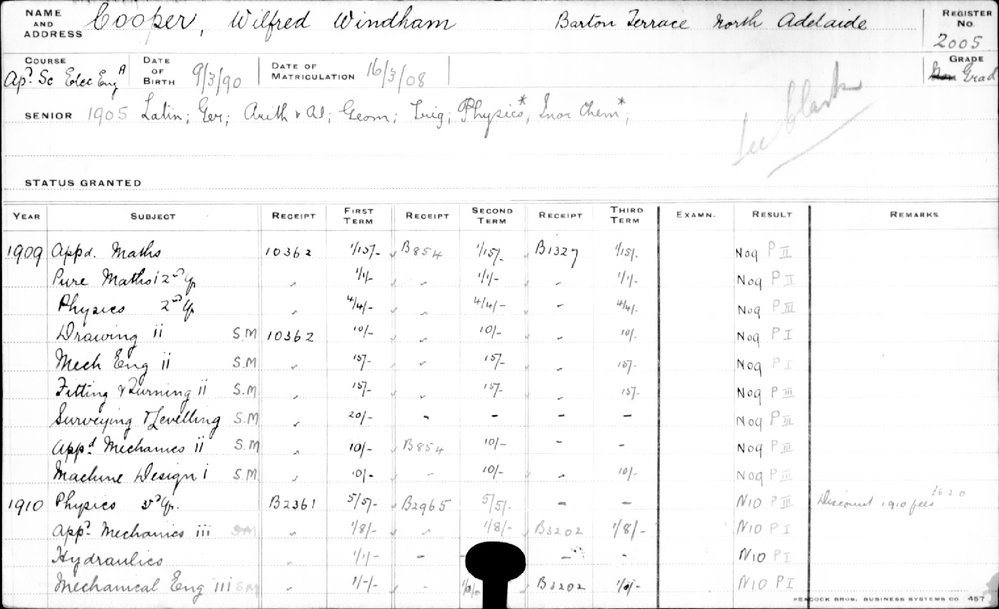 NAME AND ADDRESS Cooper, Wilfred Windham Barton Terrace North Adelaide REGISTER No. 2005
COURSE Apd Sc Elec Eng A DATE OF BIRTH 9/3/90 DATE OF MATRICULATION 16/3/08 GRADE Grad
SENIOR 1905 Latin; Ger; Arith & Al; Geom; Trig; Physics*, Inor Chem*,
STATUS GRANTED
YEAR SUBJECT RECEIPT FIRST TERM RECEIPT SECOND TERM RECEIPT THIRD TERM EXAMN. RESULT REMARKS
1909 Appd. Maths 10362 1/15/- B854 1/15/- B1327 1/15/- N09 P II
Pure Maths 2nd Yr " 1/1/- " 1/1/- " 1/1/- N09 P I
Physics 2nd Yr " 4/4/- " 4/4/- " 4/4/- N09 P III
Drawing ii S.M 10362 10/- " 10/- " 10/- N09 P I
Mech Eng ii S.M " 15/- " 15/- " 15/- N09 P I
Fitting & Turning ii S.M " 15/- " 15/- " 15/- N09 P III
Surveying & Levelling S.M " 20/- - - - - N09 P III
Appd Mechanics ii S.M " 10/- B854 10/- - - N09 P III
Machine Design i S.M " 10/- " 10/- " 10/- N09 P III
1910 Physics 3rd Yr. B2361 5/5/- B2965 5/5/- - - N10 P III Discount 1910 fees
Appd Mechanics iii S.M " 1/8/- " 1/8/- B3202 1/8/- N10 P I
Hydraulics " 1/1/- - - - N10 P I
Mechanical Eng iii S.M " 1/-/- " B3202 N10 P I
PEACOCK BROS. BUSINESS SYSTEMS CO. 457